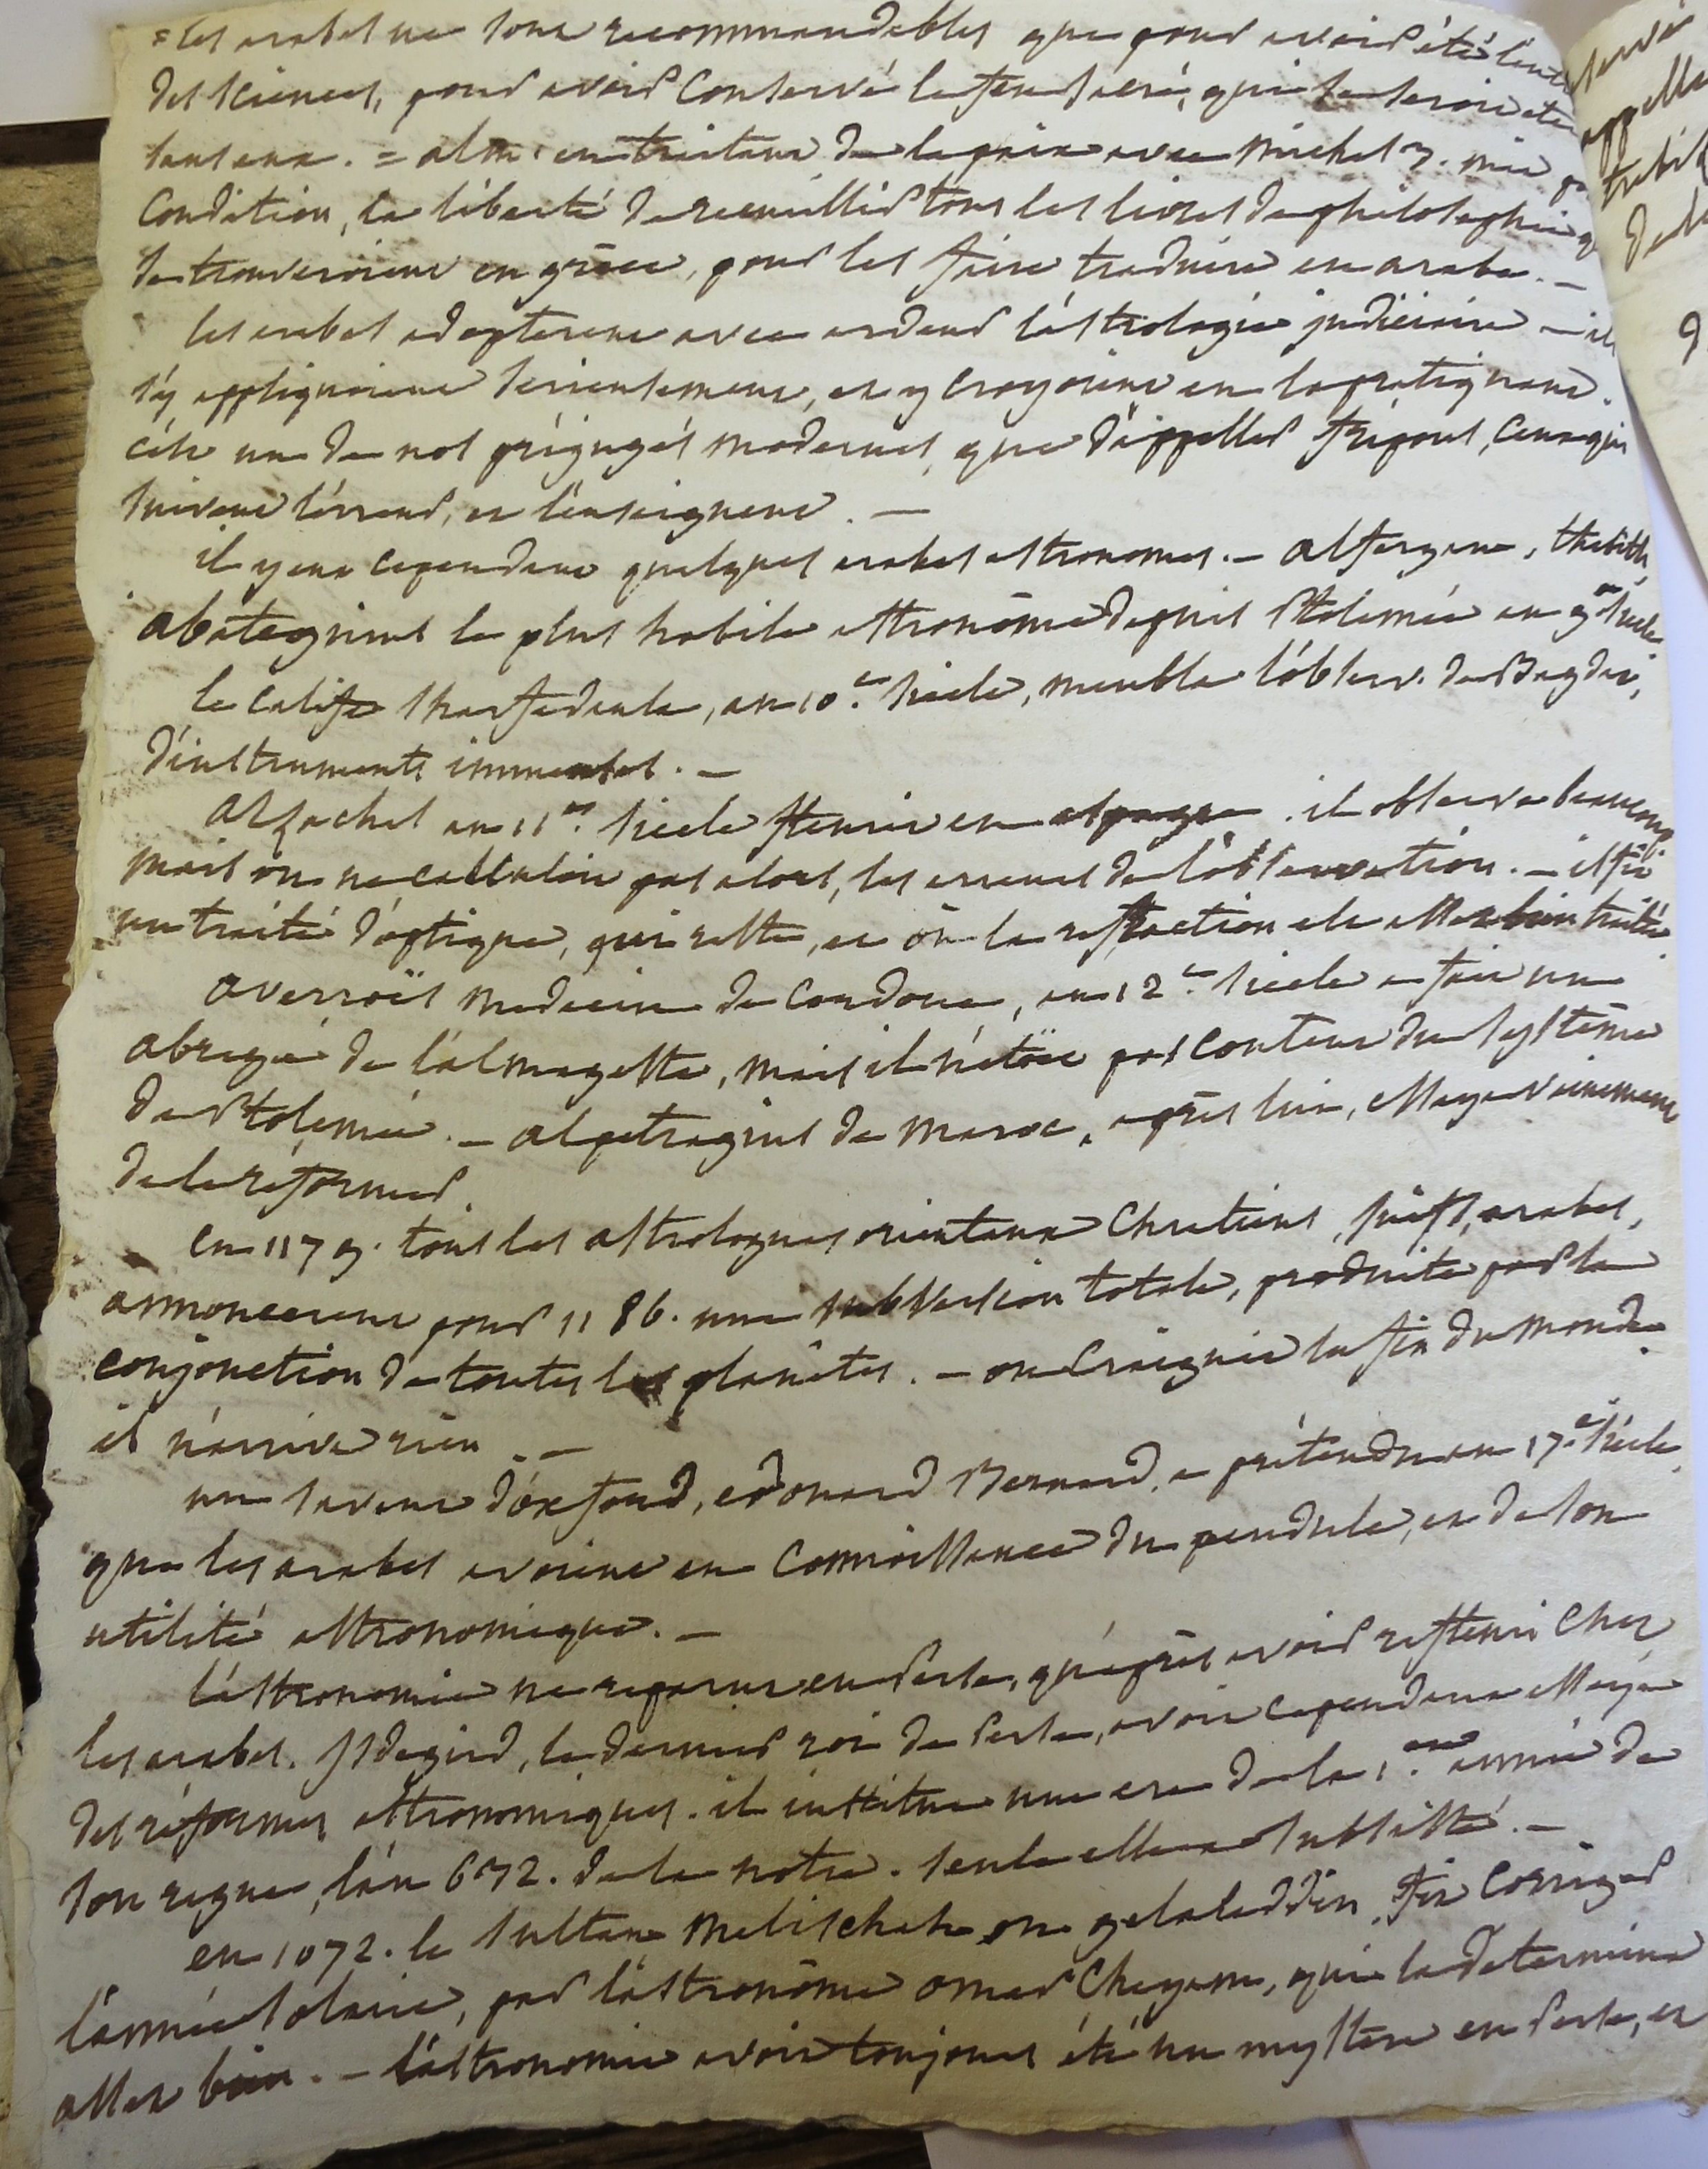 = les arabes ne sont recommandables que pour avoir été
des sciences, pour avoir conservé le feu sacré, qui se seroit
sans eux. = alm. en traitant de la paix avec Michel 3. mit
condition, la liberté de recueillir tous les livres de philosophie
se trouveroient en grèce, pour les faire traduire en arabe. —
les arabes adopterent avec ardeur l'astrologie judiciaire —
s'y appliquoient serieusement, et y croyoient en la pratiquant.
c'est un de nos préjugés modernes, que d'appeller fripons, ceux qui
suivent l'erreur, et l'enseignent. —
il y eut cependant quelques arabes astronomes. — alfergan, thebith,
abategnius le plus habile astronome depuis Ptolemée au 9e siecle
le calife sharfedaula, au 10.e siecle, meubla l'observ. de Bagdat,
d'instruments immenses. —
arzachel au 11.e siecle fleurit en espagne. il observa beaucoup
mais on ne calculoit pas alors, les erreurs de l'observation. — il fit
un traité d'optique, qui reste, et où la refraction est assez bien traitée
averroës medecin de Cordoue, au 12.e siecle a fait un
abregé de l'almageste, mais il n'étoit pas content du systême
de Ptolemée. — alpetragius de maroc, après lui, essaya vainement
de le réformer.
en 1179. tous les astrologues orientaux chretiens, juifs, arabes,
annoncerent pour 1186. une subversion totale, produite par la
conjonction de toutes les planètes. — on craignit la fin du monde.
il n'arriva rien. —
un savant d'oxford, edouard Bernard, a prétendu au 17.e siecle,
que les arabes avoient eu connoissance du pendule, et de son
utilité astronomique. —
l'astronomie ne reparut en Perse, qu'après avoir refleuri chez
les arabes. Isdegird, le dernier roi de Perse, avoit cependant essayé
des réformes astronomiques. il institua une ere de la 1.ere année de
son regne, l'an 632. de la notre. seule elle a subsisté. —
en 1072. le sultan Melischah ou gelaleddin, fit corriger
l'année solaire, par l'astronome omar Cheyam, qui la determina
assez bien. — l'astronomie avoit toujours été un mystere en Perse, et